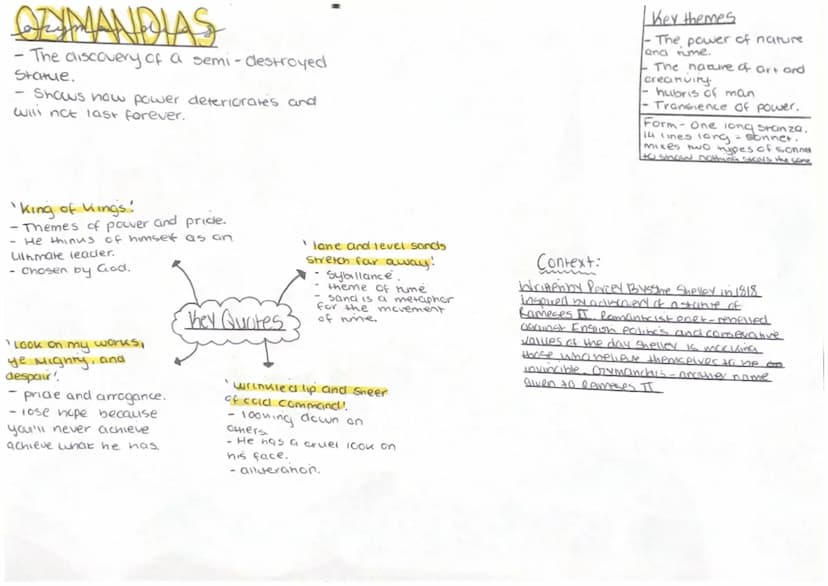 OZYMANDIAS
- The discovery of a semi-destroyed
statue.
- Shows how power deteriorates and
will not last forever.
Key themes
- The power of nature
and time.
- The nature of art and
creativity.
- hubris of man
- Transience of power.
Form- One long stanza.
14 lines long = sonnet.
mixes two types of sonnet
to show nothing stays the same
'King of Kings'.
- Themes of power and pride.
- He thinks of himself as an
ultimate leader.
- Chosen by God.
'lone and level sands
stretch far away'.
- Sybillance.
- theme of time
- sand is a metaphor
for the movement
of time.
Key Quotes
'Look on my works,
ye Mighty, and
despair'.
- pride and arrogance.
- lose hope because
you'll never achieve
achieve what he has.
'wrinkled lip and sneer
of cold command'.
- looking down on
others
- He has a cruel look on
his face.
- alliteration.
Context:
Written by Percey Bysshe Shelley in 1818
Inspired by of a statue of
Rameses II. Romanticist poet - rebelled
against English politics and conservative
values of the day Shelley is mocking
those who believe themselves to be
invincible. - another name
given to Rameses II